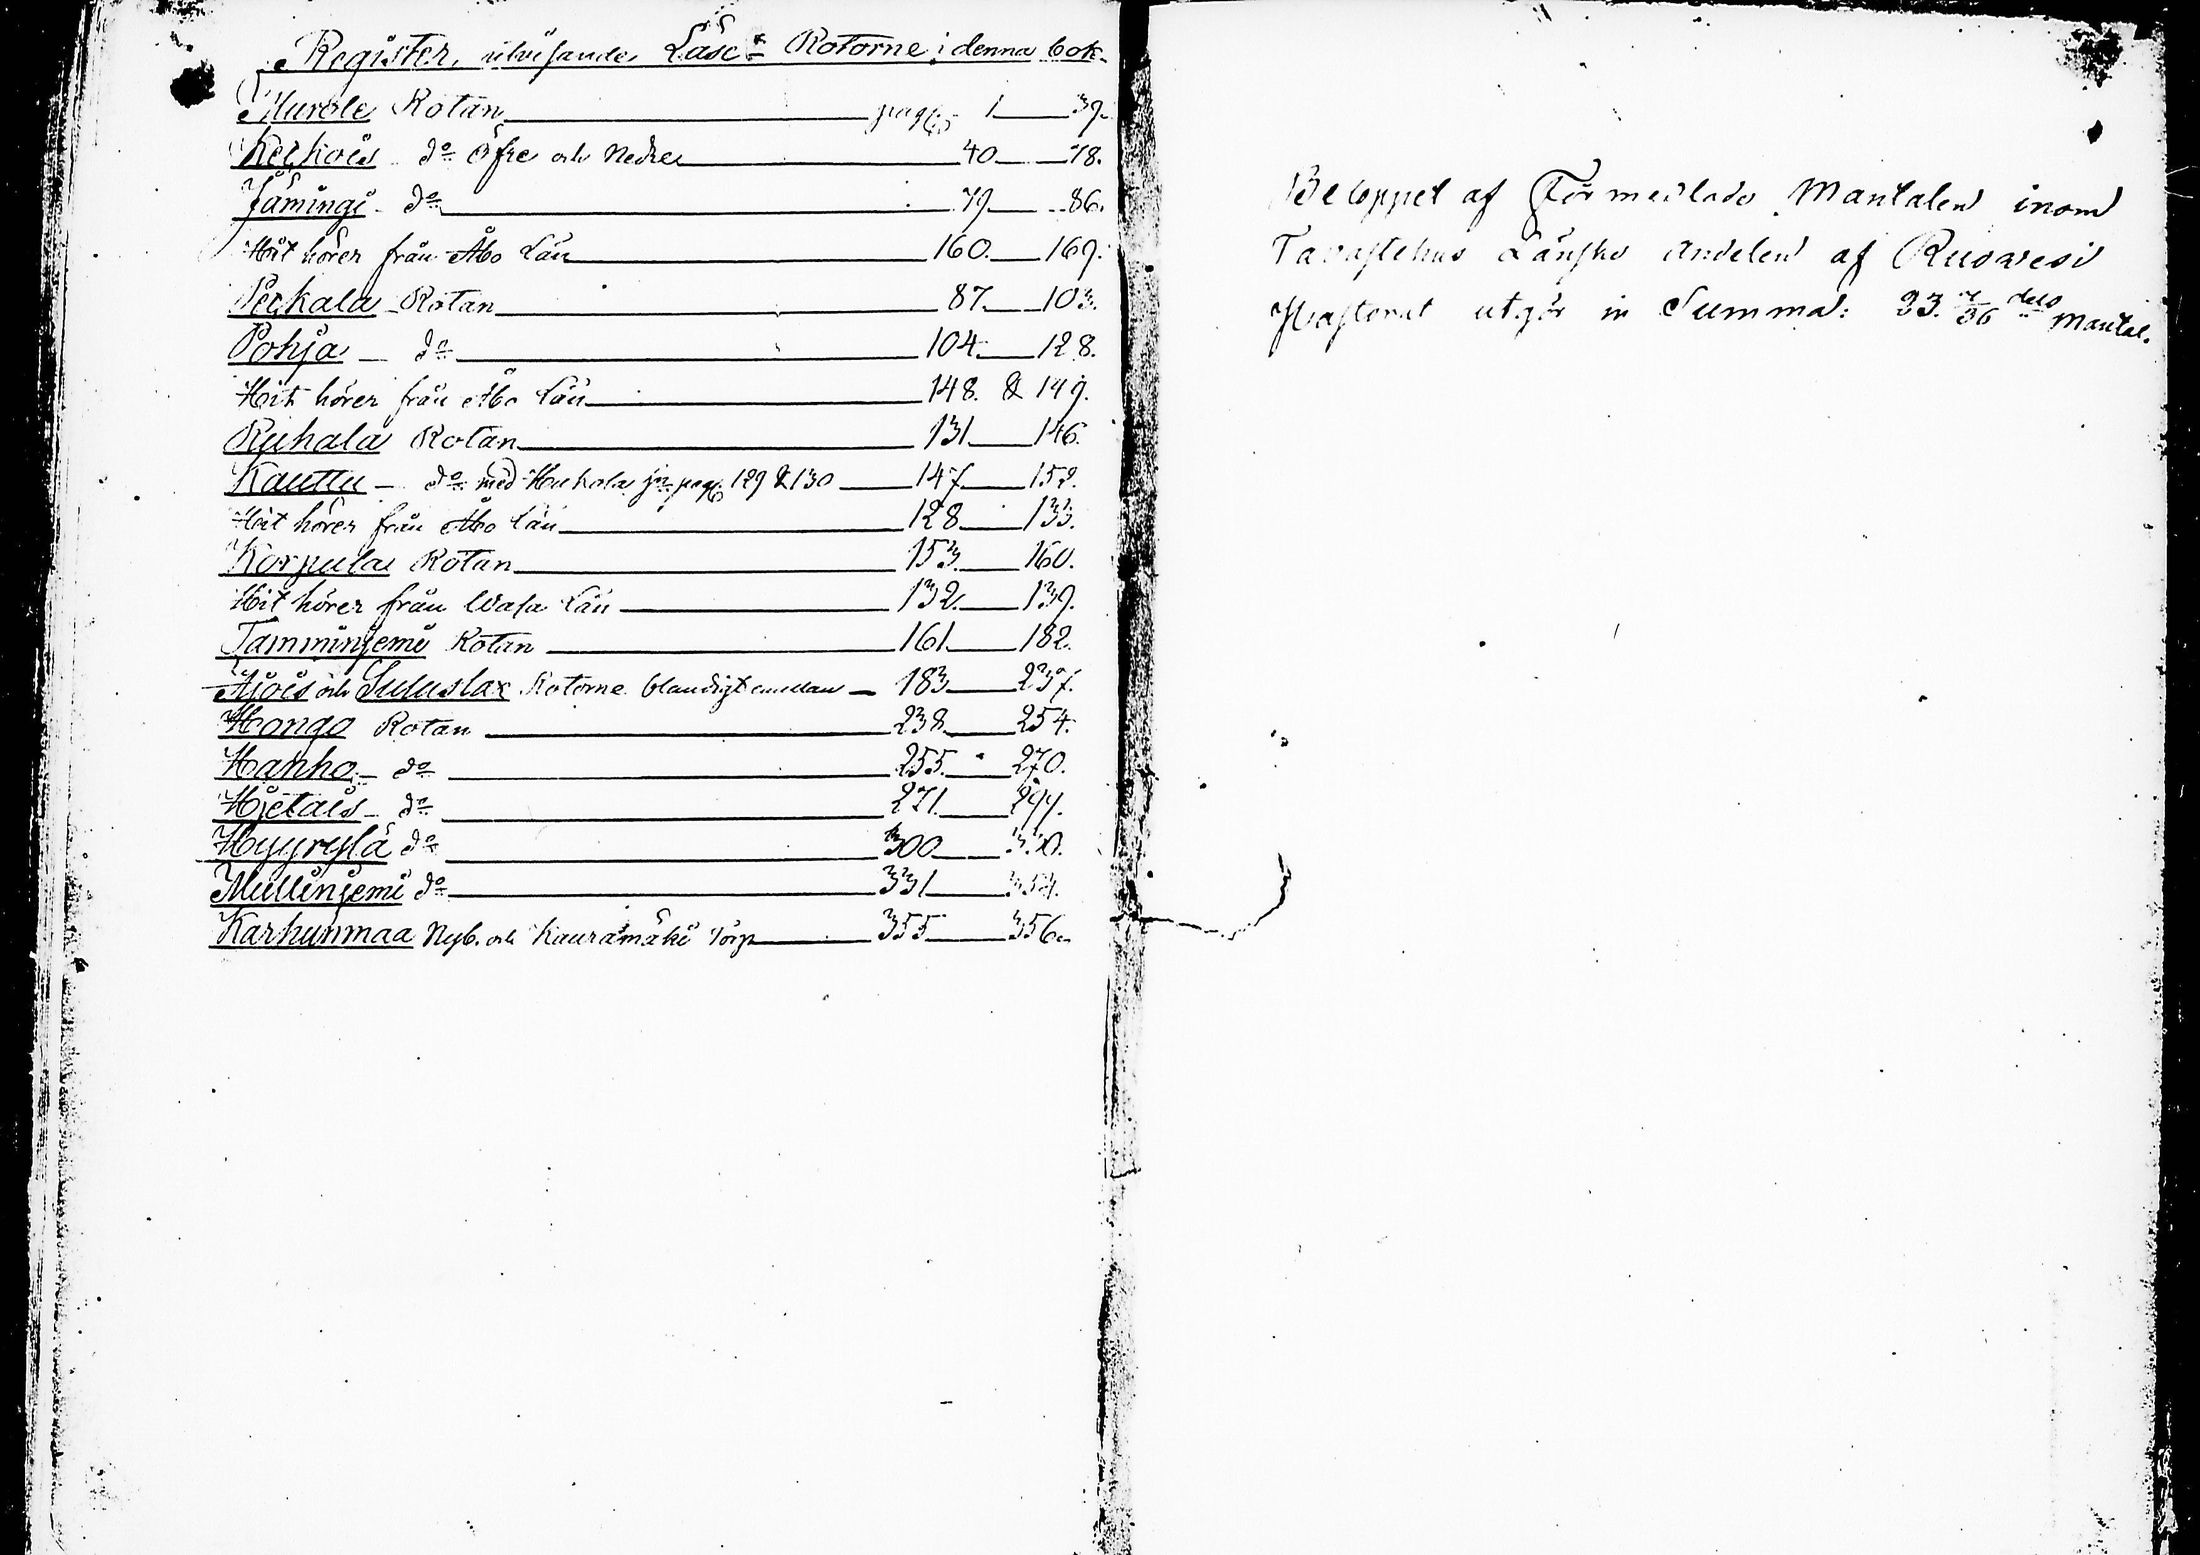 Register, utvisande Läse-Rotorne i denna bok.
Murole Rotan pag: 1 39.
Kekkois do Öfre och Nedre 40 78.
Jäminge do 79 86.
Hit hörer från Åbo Län 160. 169.
Pekkala Rotan 87. 103.
Pohja do 104. 128.
Hit hörer från Åbo Län 148. & 149.
Ruhala Rotan 131 146.
Kauttu do med Huhala pag. 129 & 130 147 152.
Hit hörer från Åbo Län 128 133.
Korpula Rotan 153. 160.
Hit hörer från Wasa Län 132. 139.
Tamminjemi Rotan 161. 182.
Äjois och Suluslax Rotorne blandigt emedan 183 237.
Hongo Rotan 238. 254.
Hanho do 255. 270.
Hjetais do 271. 299.
Hyyrylä do 300 330.
Mullinjemi do 331 354.
Karhunmaa Nyb. och Kauramäki Torp 355 356.
Beloppet af Förmedlade Mantalen inom
Tavastehus Länska andelen af Ruovesi
Pastorat utgör in Summa: 33. 7/36 dels Mantal.